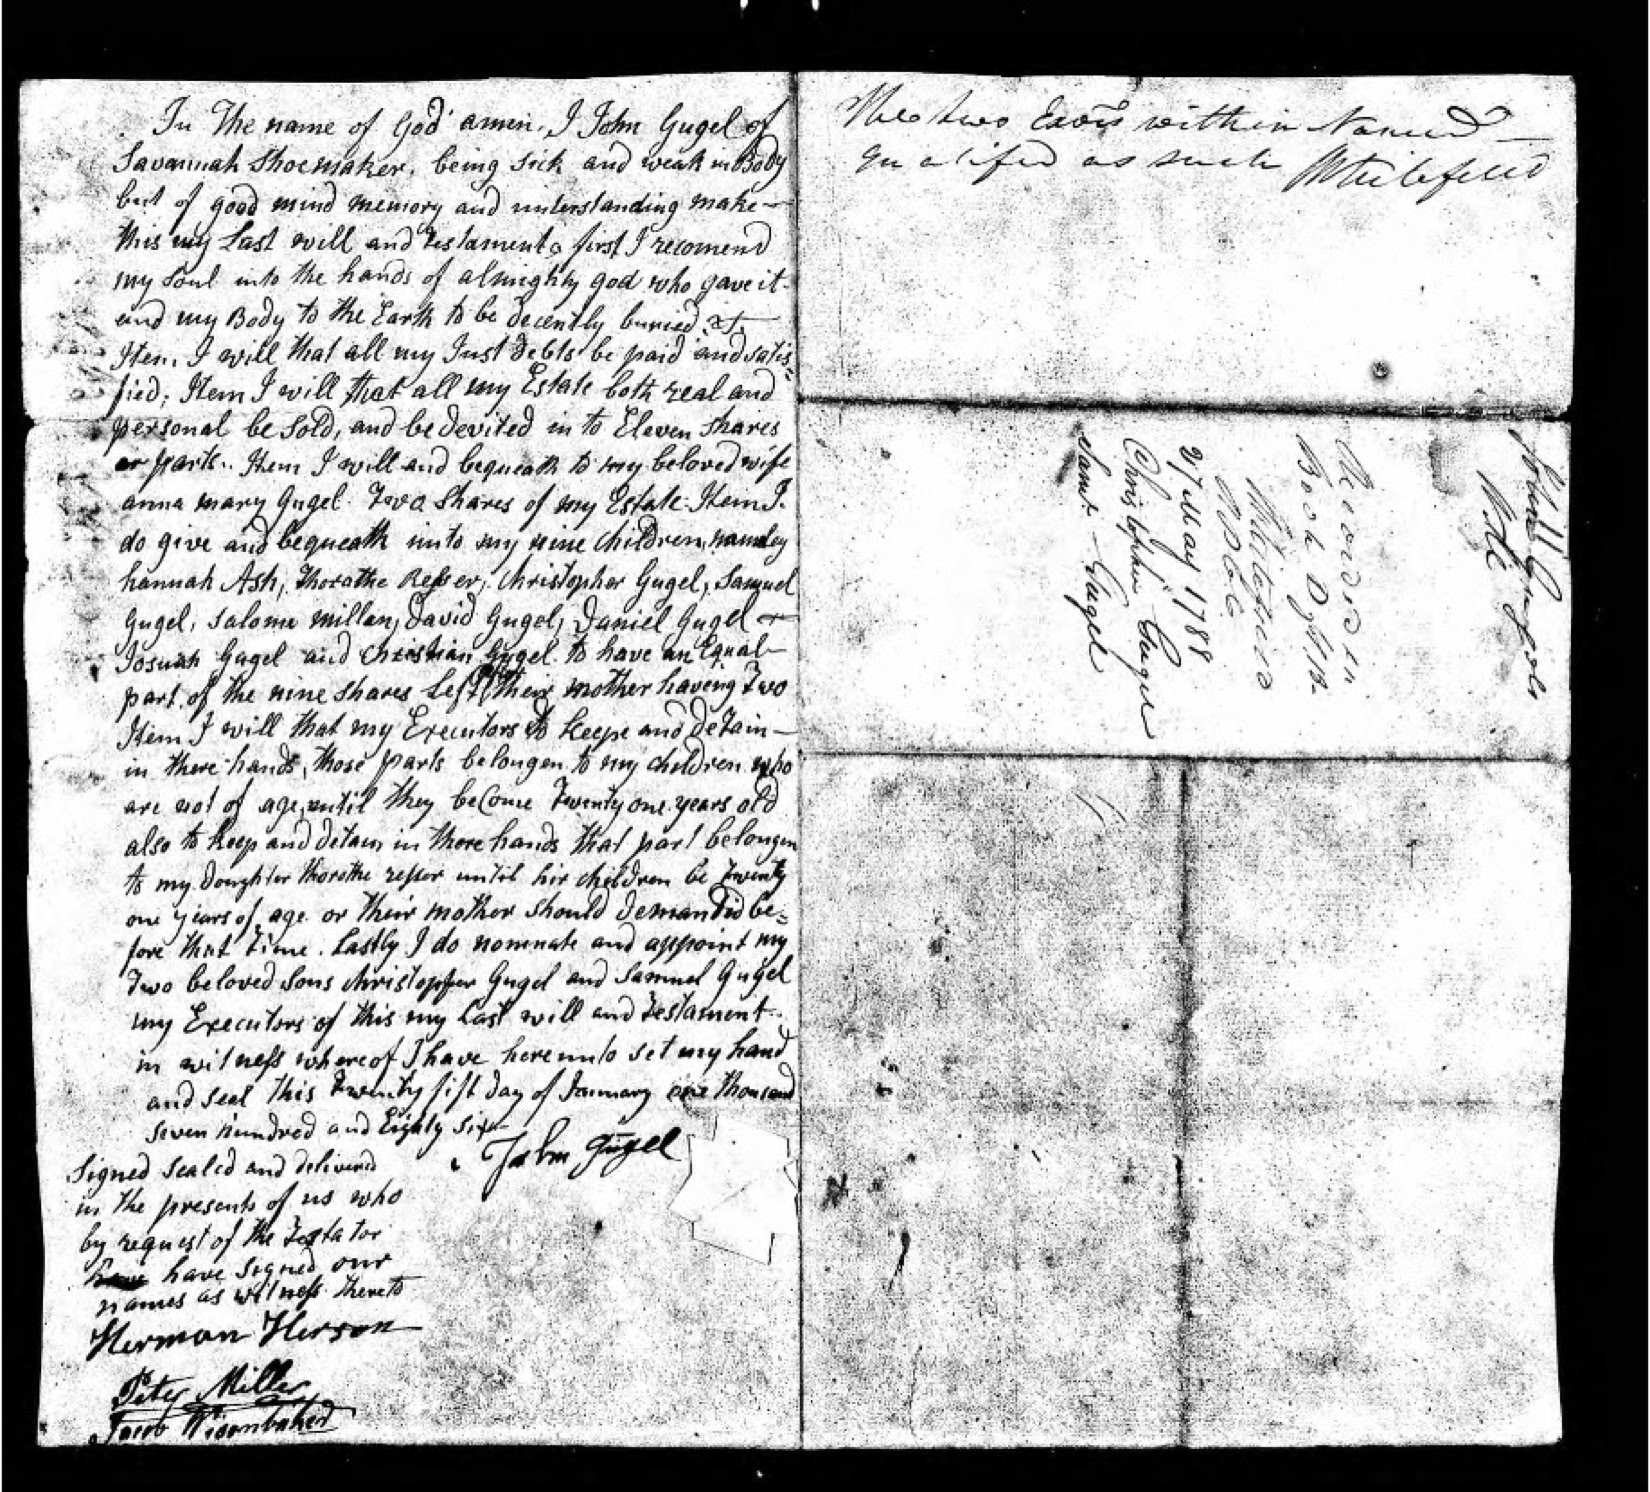 In The name of God amen. I John Gugel of
Savannah Shoemaker, being sick and weak in Body
but of good mind memory and understanding make
this my Last will and testament first I recomend
my Soul into the hands of almighty god who gave it
and my Body to the Earth to be decently buried
Item. I will that all my Just debts be paid and satis=
fied; Item I will that all my Estate both real and
personal be Sold, and be devited in to Eleven shares
or parts.. Item I will and bequeath to my beloved wife
anna mary Gugel. Two Shares of my Estate. Item I.
do give and bequeath unto my nine children, namley
hannah Ash, Thorathe Resser, Christopher Gugel, Samuel
Gugel, Salome millan, David Gugel, Daniel Gugel
Josuah Gugel and Christian Gugel. to have an Equal
part of the nine shares Left their mother having Two
Item I will that my Executors to keepe and detain
in there hands, those parts belongen to my children who
are not of age, until they become Twenty one years old
also to keep and detain in there hands that part belongen
to my Doughter thorathe resser until hir children be twenty
one years of age or their mother should demantid be=
fore that time. Lastly I do nominate and appoint my
Two beloved Sons Christopher Gugel and Samuel Gugel
my Executors of this my Last will and testament
in witness whereof I have hereunto set my hand
and seal this twenty fift day of January one thousand
seven hundred and Eighty six
John Gugel
Signed Sealed and delivered
in the presents of us who
by request of the Testator
have signed our
names as witness thereto
Herman Herson
Peter Miller
Jacob
The two Exors within Named
qualified as such Whitefield
John Gugels
Will
Recorded in
Book D
Whitefield
27 May 1788
Christopher Gugel
Saml Gugel